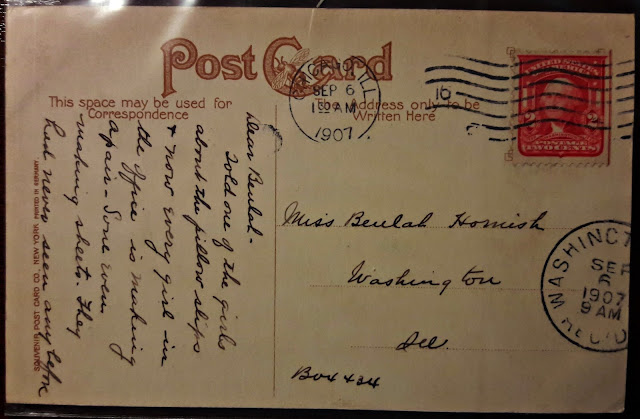 Post Card
This space may be used for
Correspondence
The Address only to be
Written Here
CHICAGO, ILL.
SEP 6
AM
1907
16
UNITED STATES
OF AMERICA
2 2
POSTAGE
TWO CENTS
Dear Beulah-
Told one of the girls
about the pillow slips
& now every girl in
the office is making
a pair. Some even
making sheets. They
had never seen any before
Miss Beulah Homish
Washington
Ill
Box 434
WASHINGT
SEP
6
1907
9 AM
REC'D
SOUVENIR POST CARD CO., NEW YORK. PRINTED IN GERMANY.